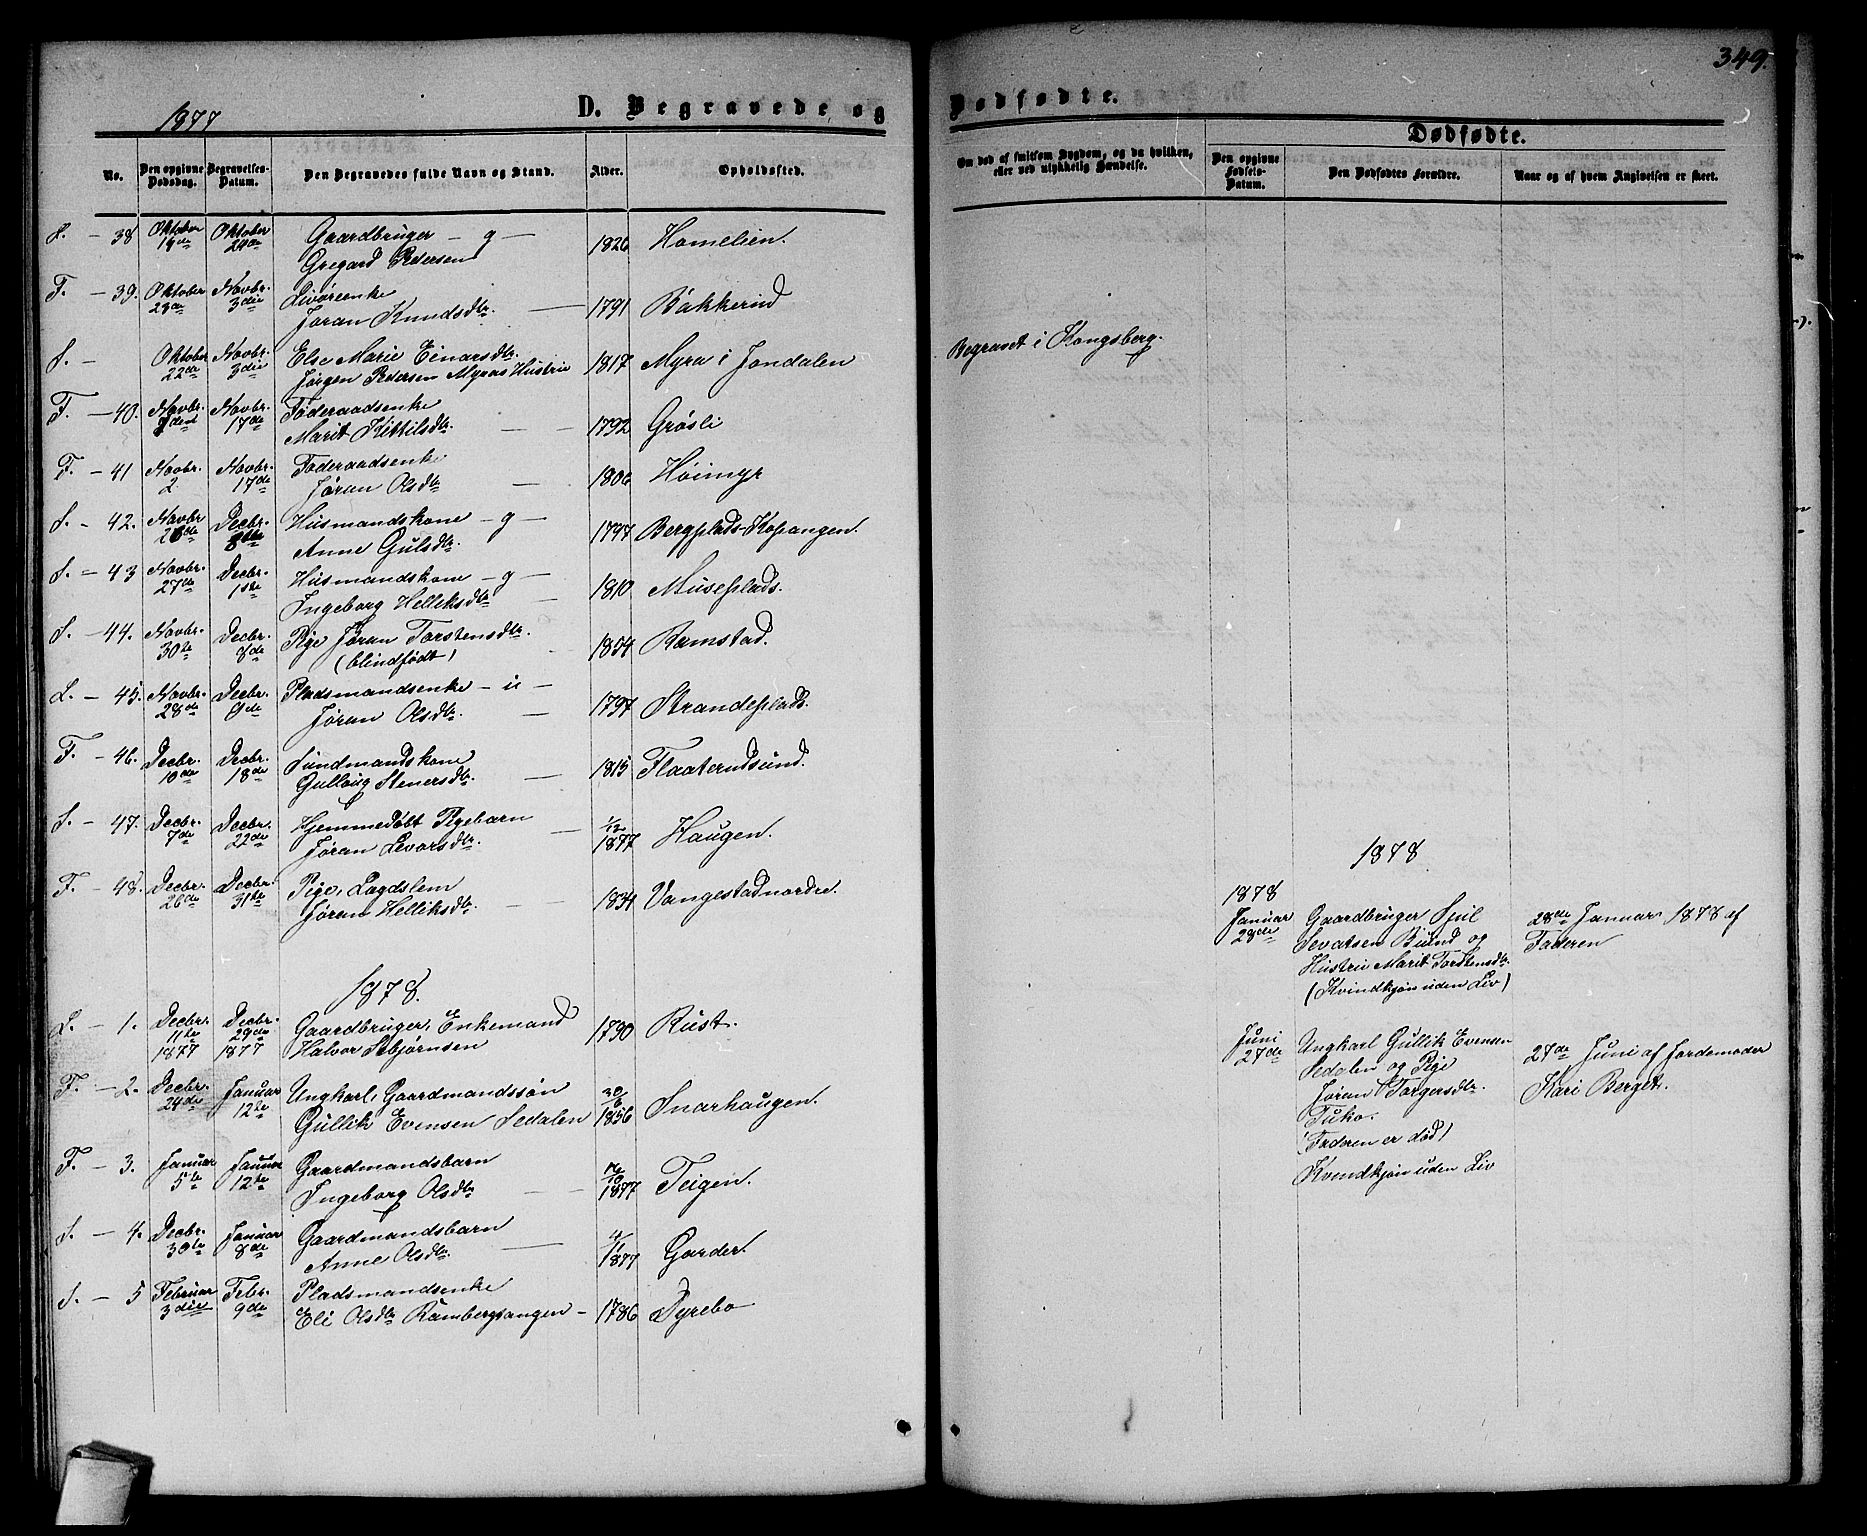 349.
1877
D. Begravede og Dødfødte.
No.
Den opgivne Dødsdag.
Begravelses-Datum.
Den Begravedes fulde Navn og Stand.
Alder.
Opholdssted.
Om død af smitsom Sygdom, og da hvilken, eller ved ulykkelig Hændelse.
Dødfødte.
Den opgivne Fødsels-Datum.
Den Dødfødtes Forældre.
Naar og af hvem Angivelsen er skeet.
38 Oktober 19de Oktober 24de Gaardbruger - g - 1826 Homelien.
Gregard Pedersen
F. - 39. Oktober 23de Novbr. 3die Livøreenke 1791 Bakkerud
Jøran Knudsdtr.
S. - Oktober 22de Novbr. 3die Else Marie Einarsdtr. 1817 Myra i Jondalen
Jørgen Pedersen Myras Hustrie
Begravet i Kongsberg.
F. - 40. Novbr. Novbr. 17de Føderaadsenke 1792 Grøsli
Marit Kittilsdtr.
F. - 41 Novbr. 2 Novbr. 17de Føderaadsenke 1806 Høimyr
Jøran Olsdtr
S. - 42. Novbr Decbr. 8de Husmandskone - g - 1797 Bergplads-Kopangen.
Anne Gulsdtr.
S. - 43 Novbr. 27de Decbr. 1ste Husmandskone - g - 1810 Museplads.
Ingeborg Helliksdtr
S. - 44. Novbr. 30te Decbr. 8de Pige Jøran Torstensdtr. 1854 Ramstad.
(blindfødt)
L. - 45. Novbr. 28de Decbr. 9de Pladsmandsenke - u - 1797 Strandeplads.
Jøran Olsdtr.
F. - 46. Decbr. 10de Decbr. 18de Sundmandskone 1815 Flaaterudsund.
Gulloug Stenersdtr.
S. - 47. Decbr. 7de Decbr. 22de Hjemmedøbt Pigebarn 1/12 1877 Haugen.
Jøran Levorsdtr.
F. - 48. Decbr. 26de Decbr. 31te Pige, Lagdslem 1834 Vangestadnordre.
Jøran Helliksdtr.
1878.
L. - 1. Decbr. 11te 1877 Decbr. 29de 1877 Gaardbruger, Enkemand 1790 Rust.
Halvor Asbjørnsen
F. - 2. Decbr. 24de Januar 12te Ungkarl, Gaardmandssøn 30/6 1856 Snarhaugen.
Gullik Evensen Sedalen
F. - 3. Januar 5te Januar 12te Gaardmandsbarn 1877 Teigen.
Ingeborg Olsdtr
S. - 4. Decbr. 30te Januar 8de Gaardmandsbarn 1877 Garder.
Anne Olsdtr.
S. - 5 Februar 3die Febr. 9de Pladsmandsenke 1786 Dyrebo
Eli Olsdtr Rambergsangen -
1878
1878
Januar 28de
Gaardbruger Spil
Sevatsen Biund og
Hustrie Marit Torstensdtr.
(Kvindkjøn uden Liv)
28de Januar 1878 af
Faderen
Juni 27de
Ungkarl Gullik Evensen
Sedalen og Pige
Jøran Torgersdtr.
Tuko.
(Faderen er død)
Kvindkjøn uden Liv
27de Juni af Jordemoder
Kari Berget.